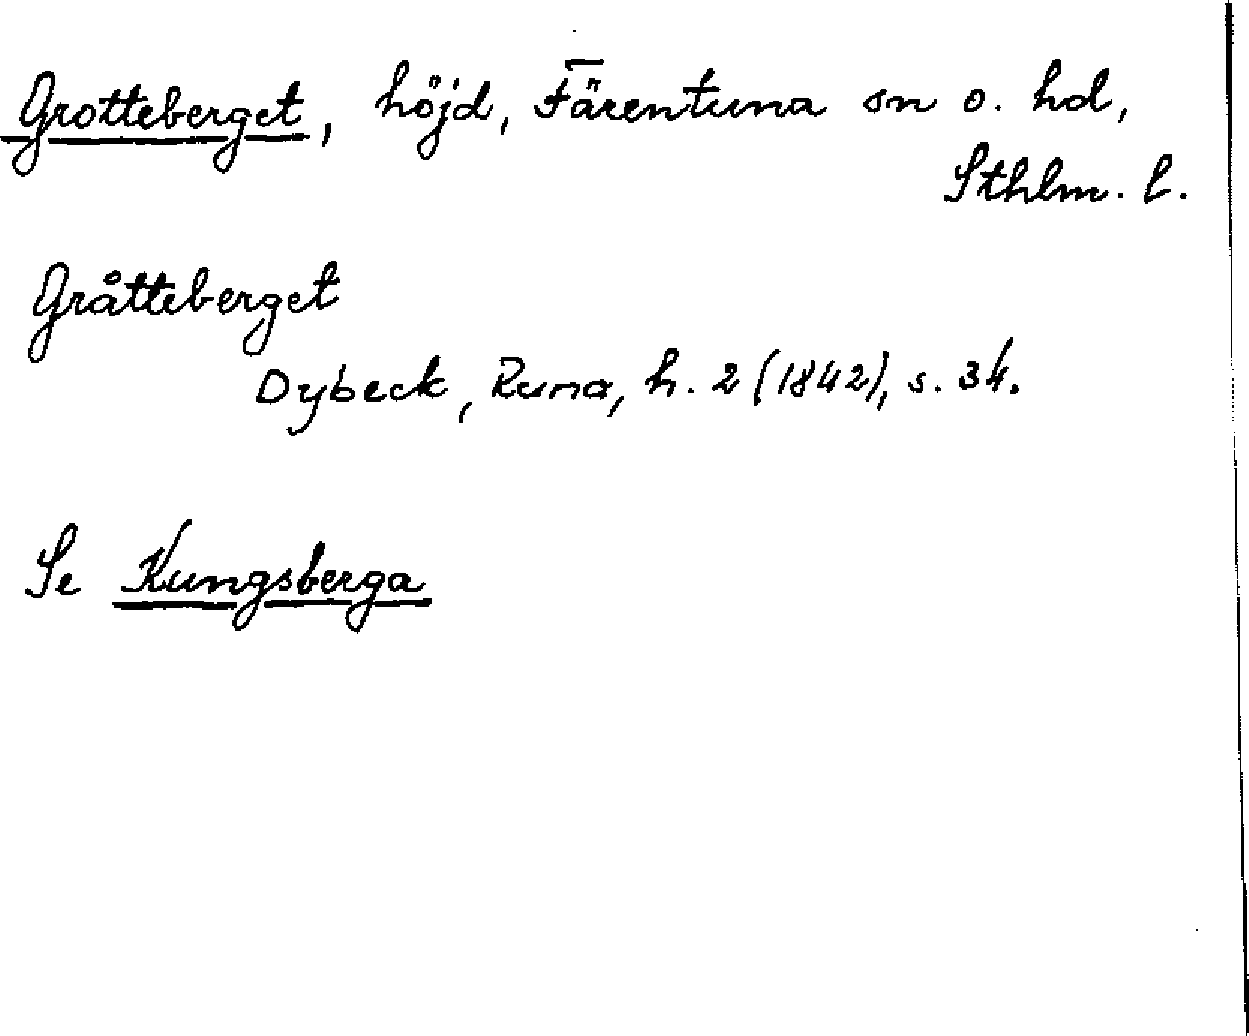 Grotteberget, höjd, Färentuna sn o. hd,
Sthlm. l.
Gråtteberget
Dybeck, Runa, h. 2 (1842), s. 34.
Se Kungsberga